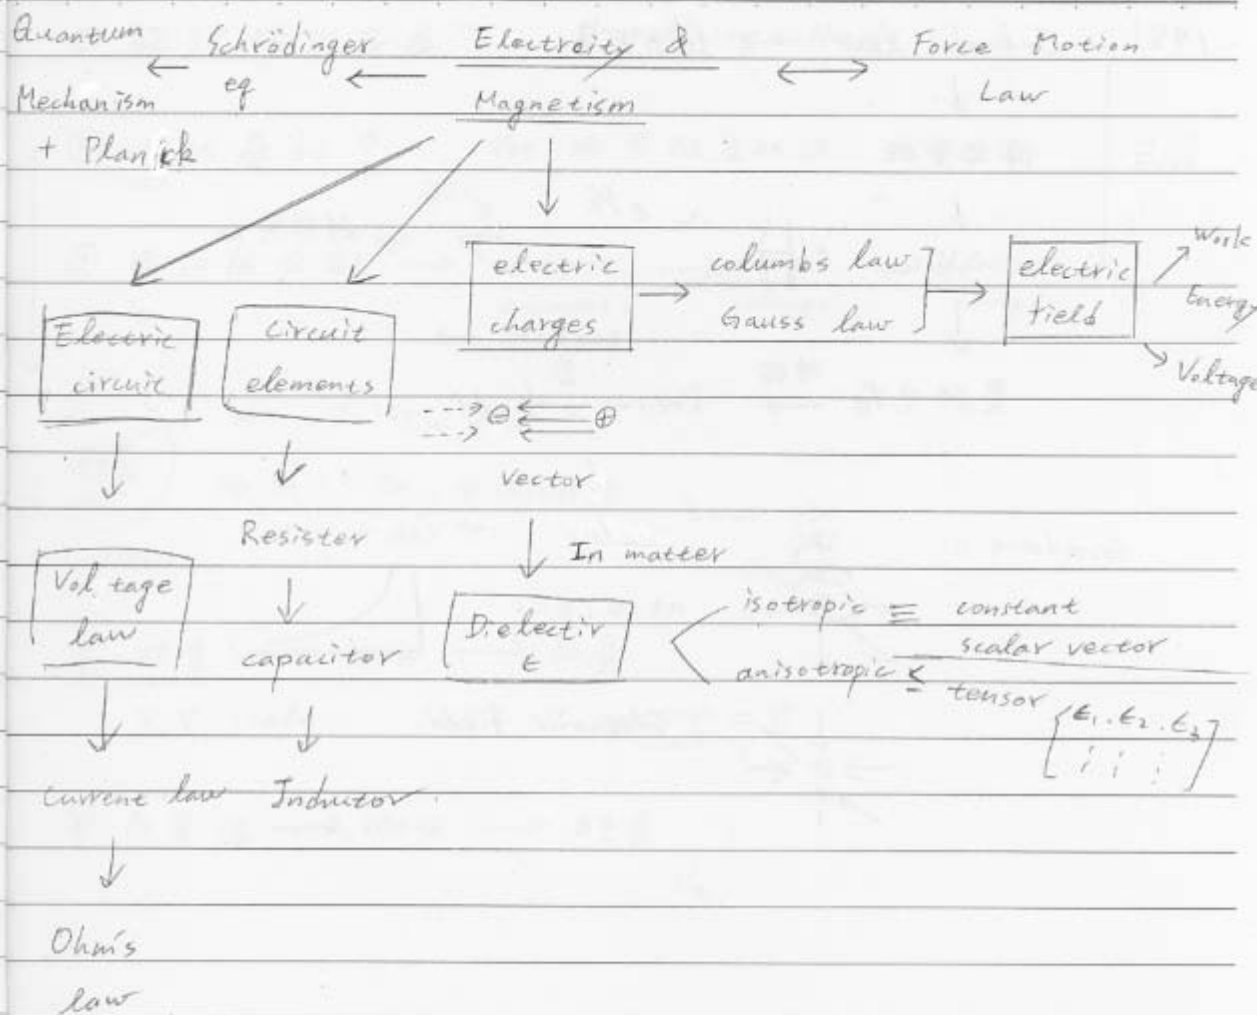 Quantum
Mechanism
+ Planck
Schrödinger
eq
Electreity &
Magnetism
Force Motion
Law
electric
charges
columbs law
Gauss law
electric
field
Work
Energy
Voltage
Electric
circuit
Circuit
elements
⊖ ⊕
vector
In matter
Resister
Voltage
law
capacitor
Dielectir
ε
isotropic = constant
scalar vector
anisotropic
tensor
ε1. ε2. ε3
Current law
Inductor
Ohm's
law